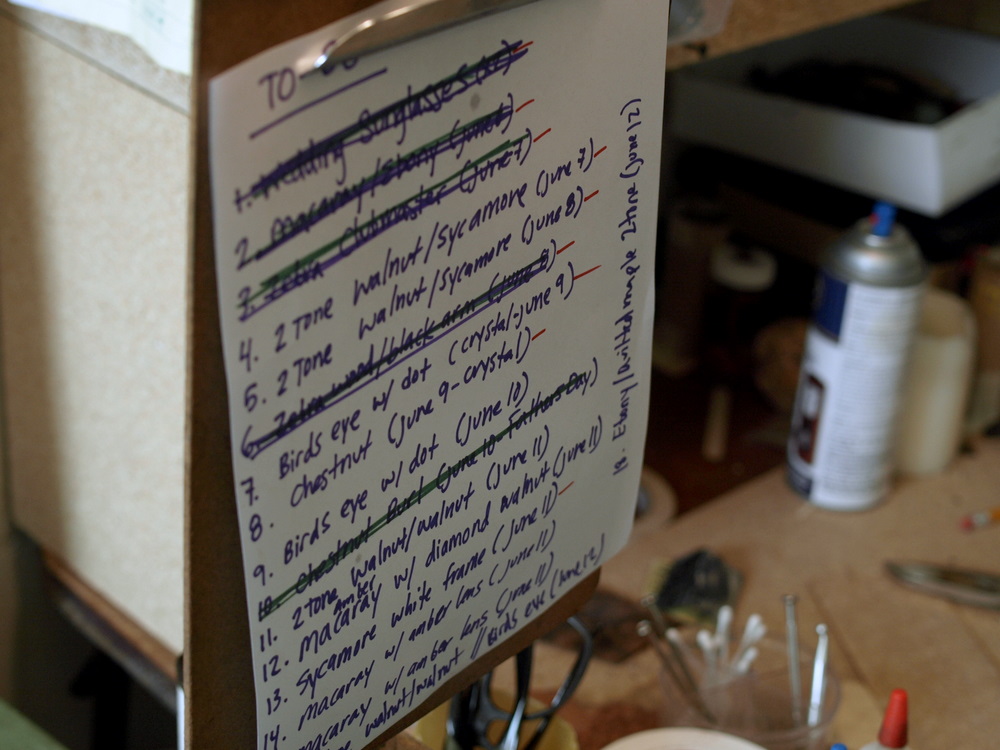 TO-DO
1. Wedding Sunglasses
2. macaray/Ebony (june 6)
3. Zebra Clubmaster (June 7)
4. 2 Tone walnut/sycamore (june 7)
5. 2 Tone walnut/sycamore (june 8)
6. Zebra wood/black arm (june 8)
7. Birds eye w/ dot (crystal-june 9)
8. chestnut (june 9-crystal)
9. Birds eye w/ dot (june 10)
10. chestnut Burl (june 10-Fathers Day)
11. 2tone walnut/walnut (june 11)
12. macaray amber w/ diamond walnut (june 11)
13. Sycamore white frame (june 11)
14. macaray w/ amber lens (june 11)
macaray w/ amber lens (june 11)
walnut/walnut // Birds eye (june 12)
18. Ebony/ 2tone (june 12)